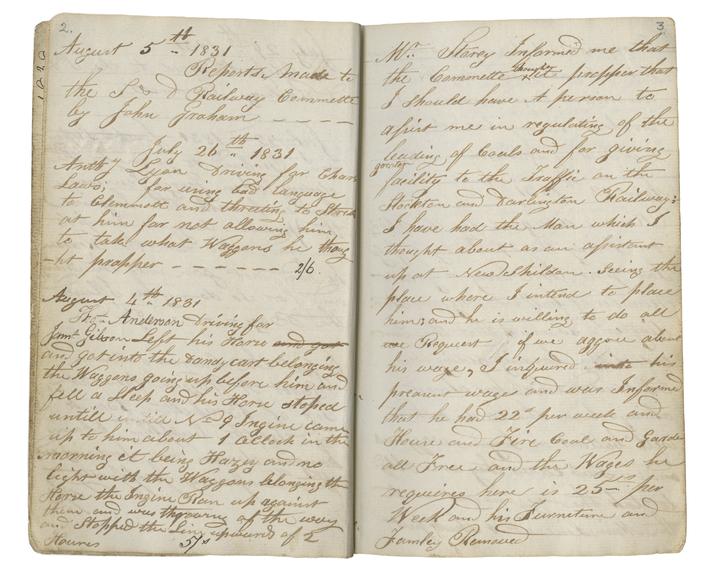 2.
August 5th 1831
Reports Made to
the S and D Railway Committe
by John Graham - - - -
July 26th 1831
Anthy Lyon Driving for Chars
Laws; for using bad language
to Clemmett and threting to Strick
at him for not allowing him
to take what Waggons he thoug
-ht propper - - - - - - - 2/6.
August 4th 1831
Thos Anderson Driving for
Jams Gibson Left his Horse and got
and got into the Dandy cart belonging
the Waggons going up before him and
fell a Sleep and his Horse Stoped
untill No 9 Ingine came
up to him about 1 aClock in the
morning it being Hazey and no
light with the Waggons belonging the
Horse the Ingine Ran up against
them and was throwing of the way
and Stopped the Line upwards of 2
Houres 5/s
3
Mr. Storey Informed me that
the Commette thought it propper that
I should have A person to
assist me in regulating of the
leading of Couls and for giving
greater
facility to the Traffic on the
Stockton and Darlington Railway;
I have had the Man which I
thought about as an assistant
up at New Shildon. Seeing the
place where I intend to place
him; and he is willing to do all
we Request if we aggree about
his wage, I inquired his
preasent wage and was Informe
that he had 22s per week and
House and Fire Coal and Garde
all Free and the Wages he
requires here is 25s per
Week and his Furneture and
Famley Removed